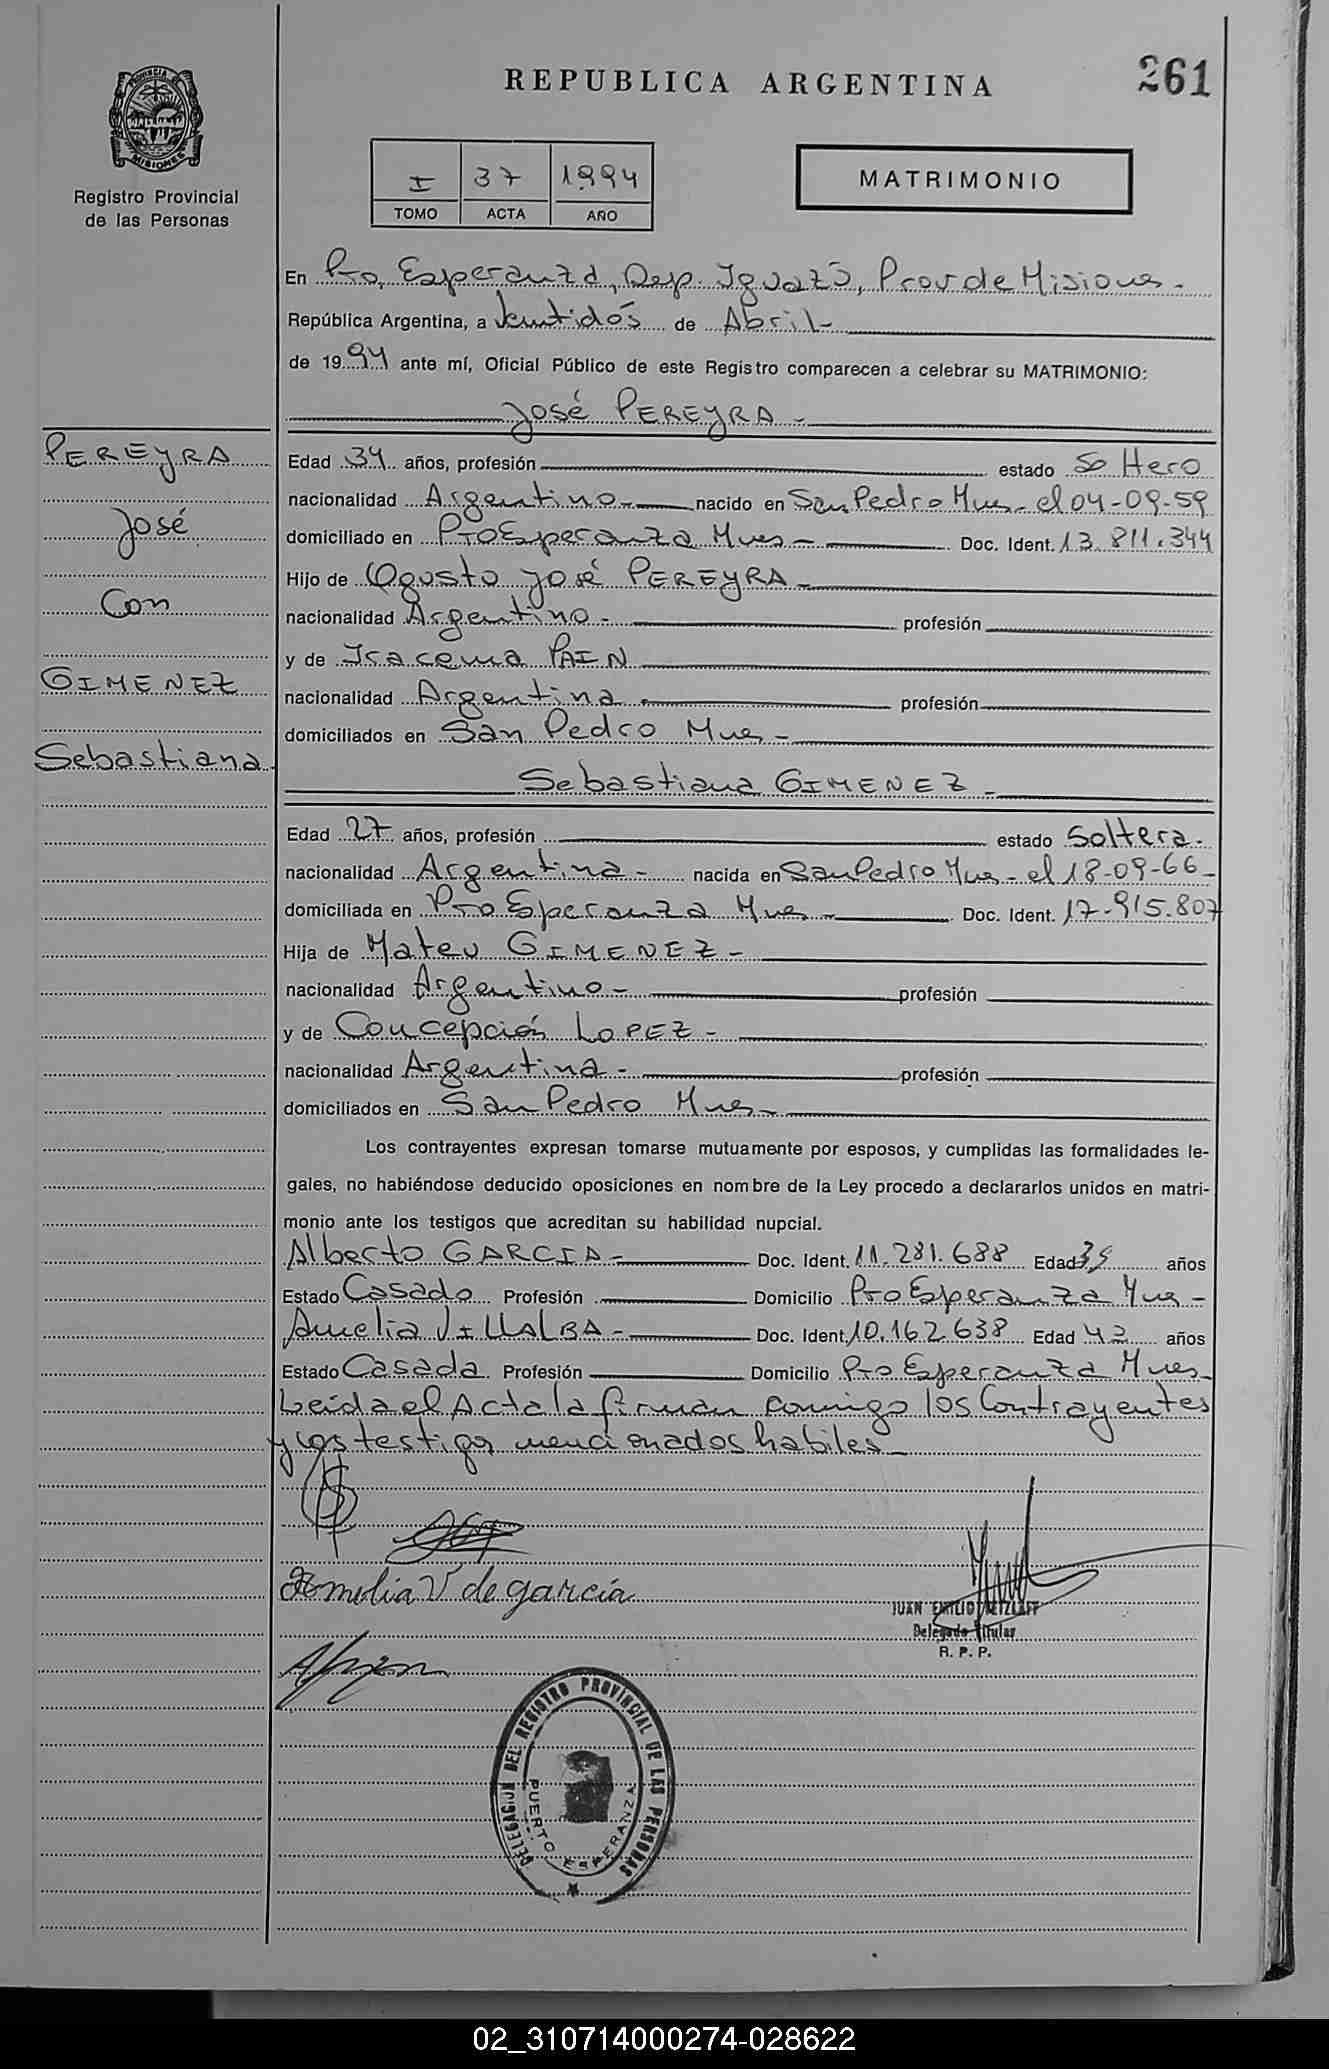 REPUBLICA ARGENTINA
261
PROVINCIA DE
MISIONES
Registro Provincial
de las Personas
I 37 1994
TOMO ACTA AÑO
MATRIMONIO
En Pto. Esperanza, Dep. Iguazú, Prov de Misiones.-
República Argentina, a Ventidós de Abril-
de 1994 ante mí, Oficial Público de este Registro comparecen a celebrar su MATRIMONIO:
José PEREYRA-
PEREYRA
José
Con
GIMENEZ
Sebastiana
Edad 34 años, profesión estado Soltero
nacionalidad Argentino- nacido en San Pedro Mnes- el 04-09-59
domiciliado en Pto Esperanza Mnes- Doc. Ident. 13.811.344
Hijo de Ogusto José PEREYRA-
nacionalidad Argentino- profesión
y de Iracema PAIN
nacionalidad Argentina. profesión
domiciliados en San Pedro Mnes-
Sebastiana GIMENEZ-
Edad 27 años, profesión estado Soltera-
nacionalidad Argentina- nacida en San Pedro Mnes- el 18-09-66-
domiciliada en Pto Esperanza Mnes- Doc. Ident. 17.915.807
Hija de Mateu GIMENEZ-
nacionalidad Argentino- profesión
y de Concepción LOPEZ-
nacionalidad Argentina- profesión
domiciliados en San Pedro Mnes-
Los contrayentes expresan tomarse mutuamente por esposos, y cumplidas las formalidades le-
gales, no habiéndose deducido oposiciones en nombre de la Ley procedo a declararlos unidos en matri-
monio ante los testigos que acreditan su habilidad nupcial.
Alberto GARCIA- Doc. Ident. 11.281.688 Edad 39 años
Estado Casado Profesión Domicilio Pto Esperanza Mnes-
Amelia VILLALBA- Doc. Ident. 10.162.638 Edad 42 años
Estado Casada Profesión Domicilio Pto Esperanza Mnes-
Leida el Acta la firman comigo los Contrayentes
y los testigos mencionados habiles-
Amelia V de garcia
JUAN EMILIO RETZLAFF
Delegado Titular
R. P. P.
DELEGACION DEL REGISTRO PROVINCIAL DE LAS PERSONAS
PUERTO ESPERANZA
02_310714000274-028622